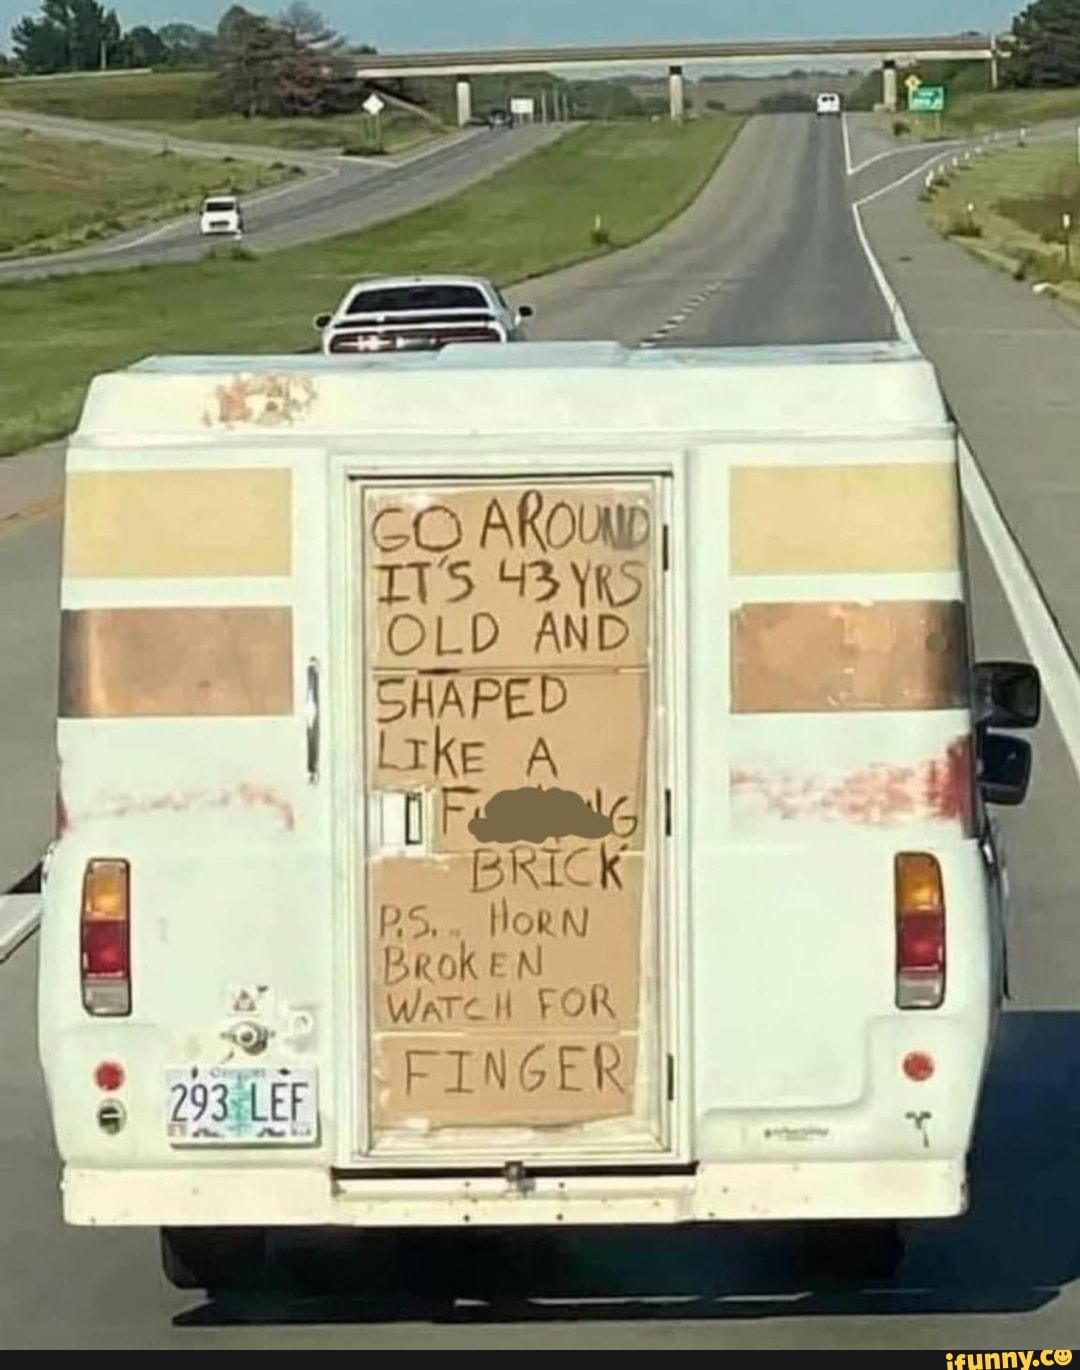 GO AROUND
IT'S 43 YRS
OLD AND
SHAPED
LIKE A
BRICK
P.S... HORN
BROKEN
WATCH FOR
FINGER
293 LEF
ifunny.co